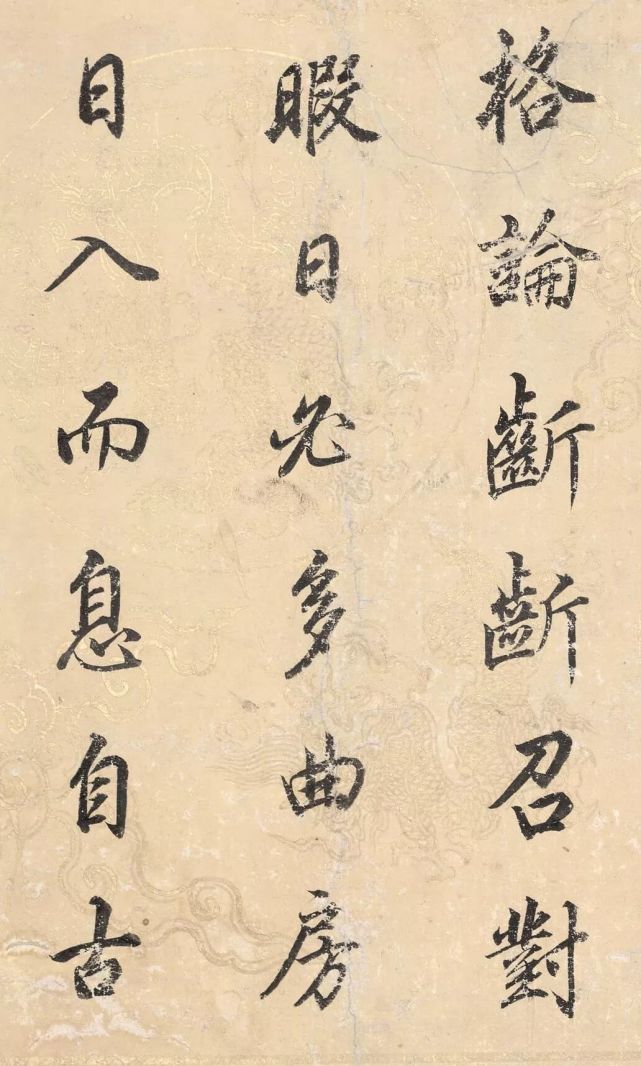 格論齗齗召對
暇日必多曲房
日入而息自古